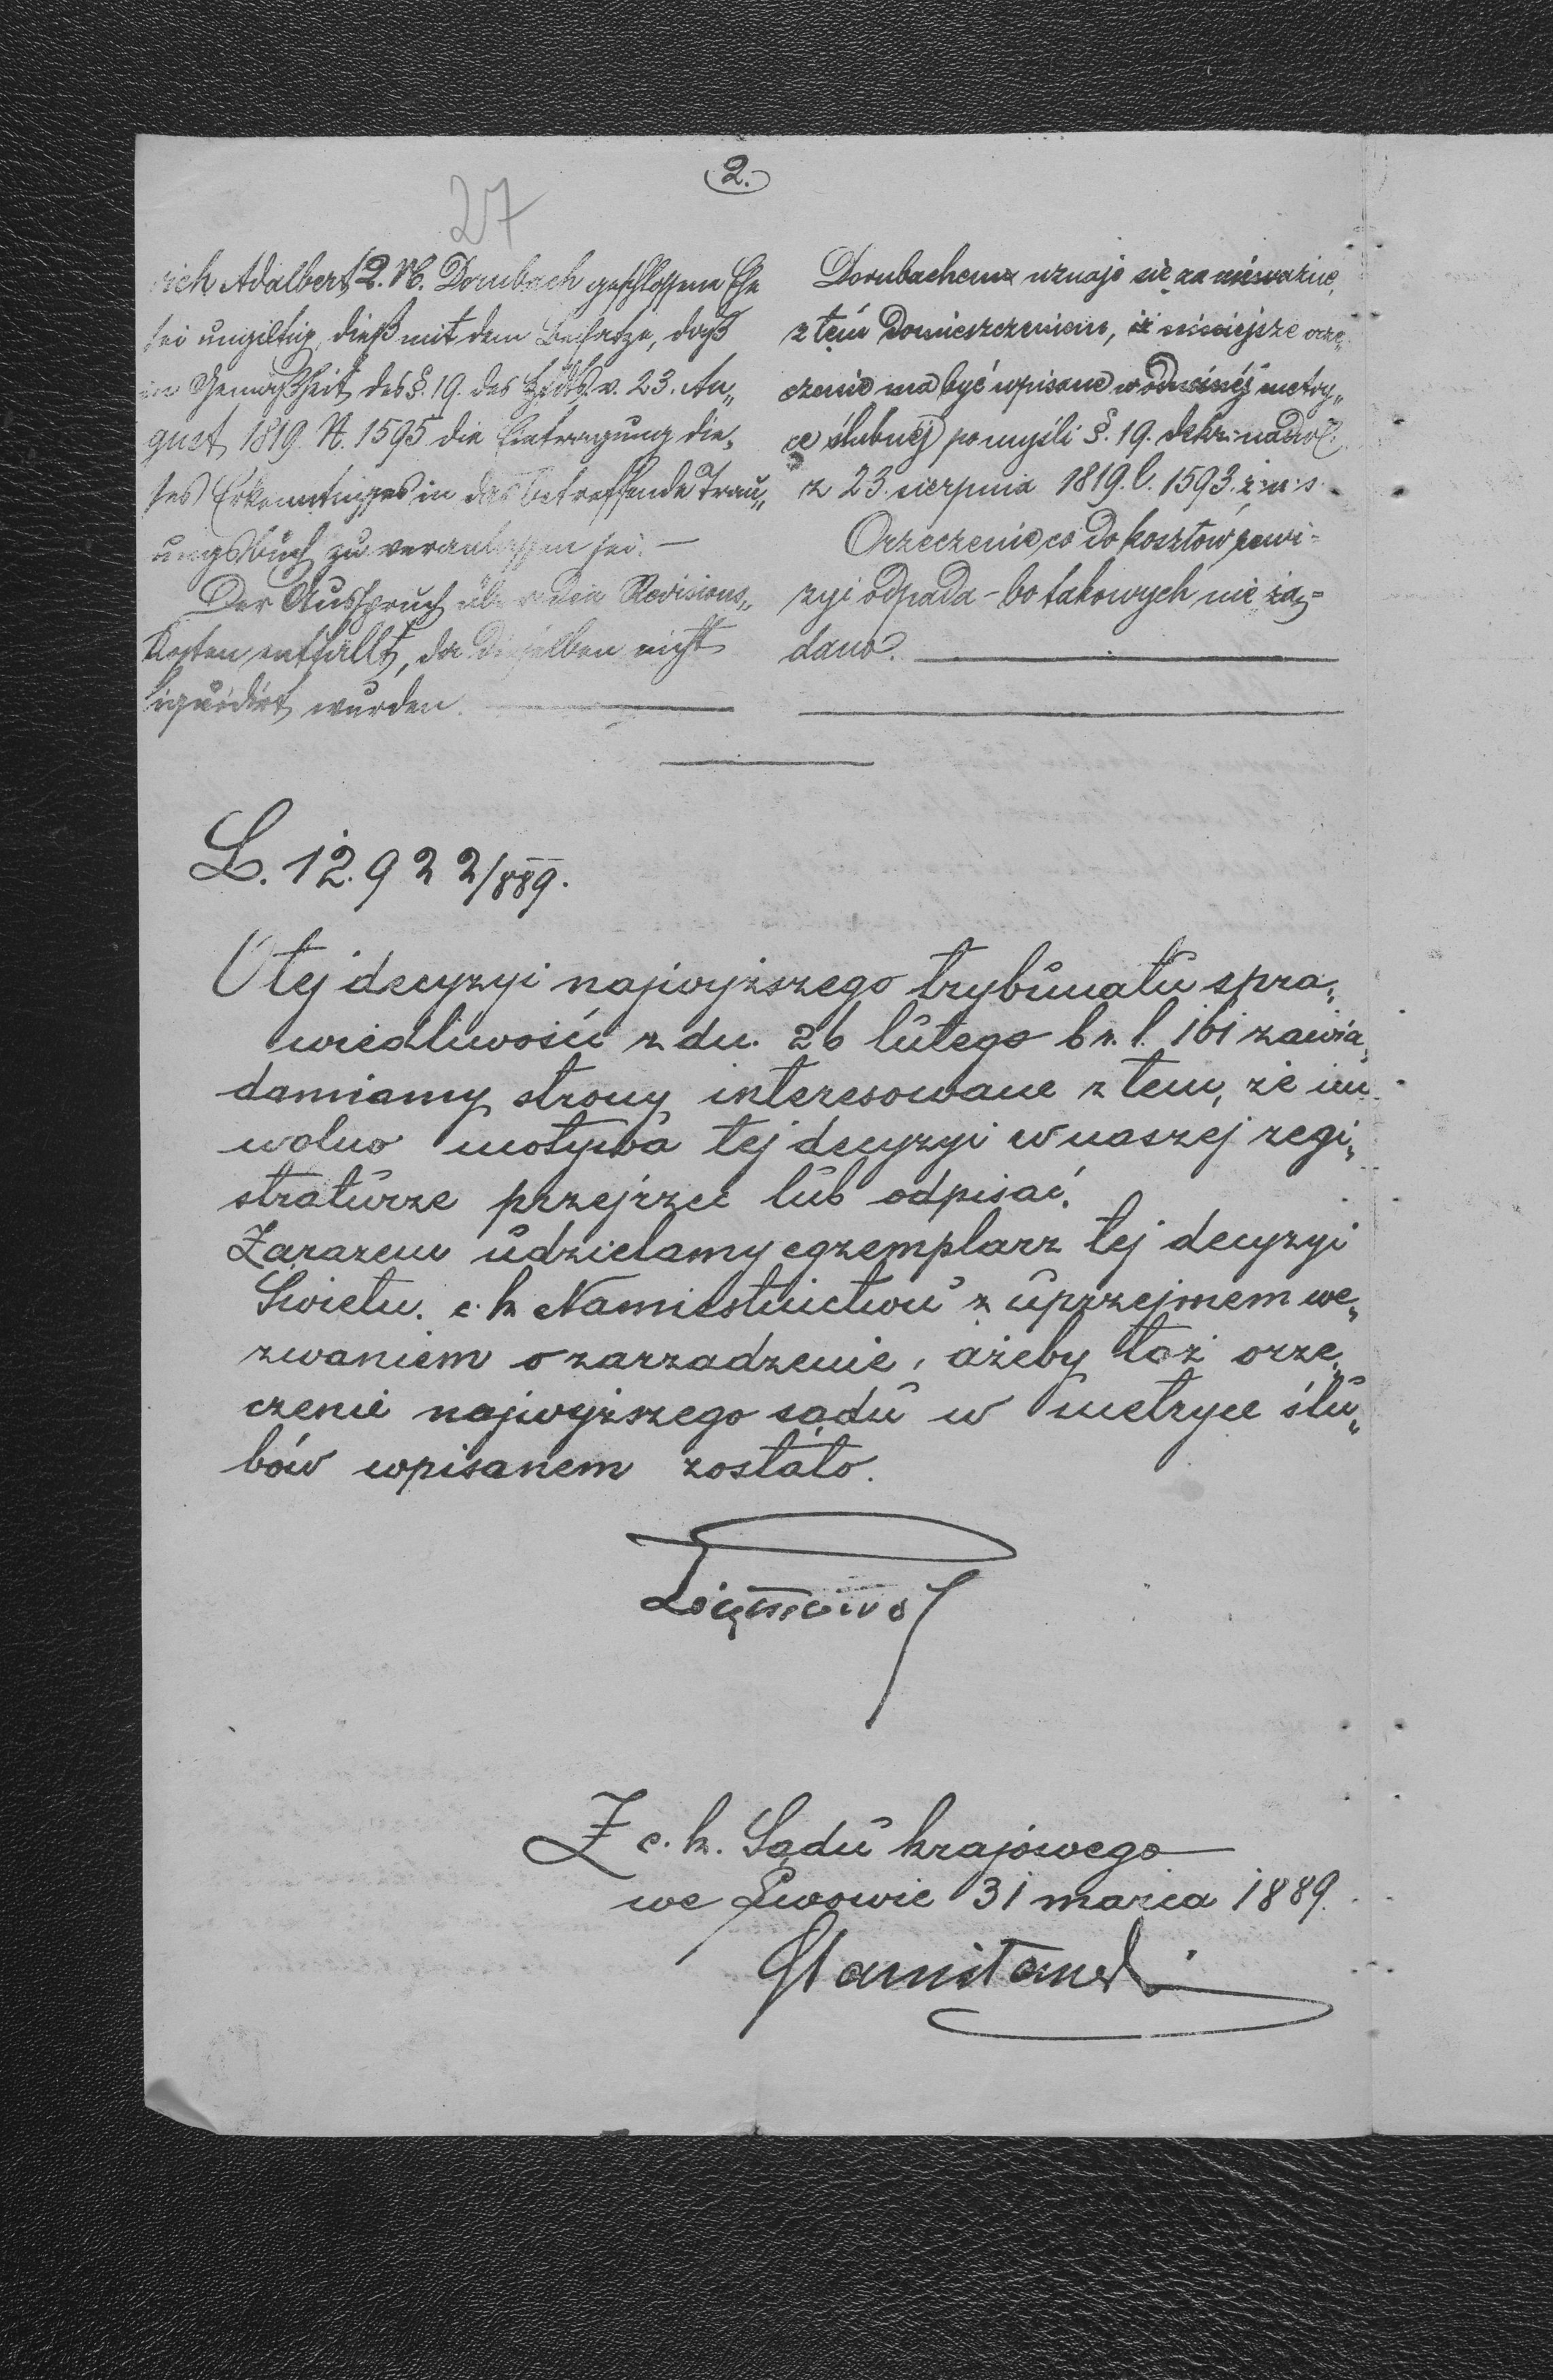 2.
27
rich Adalbert 2. N. Dornbach geschlossene Ehe
sei ungiltig, dieß mit dem Beisatze, daß
in Gemäßheit des §. 19. des Hfdts. v. 23. Au„
gust 1819 N. 1595 die Eintragung die„
ses Erkenntnisses in das betreffende Trau„
ungsbuch zu veranlassen sei. —
Der Ausspruch über die Revisions„
kosten entfällt, da dieselben nicht
liquidirt wurden.
Dornbachem uznaje się za nieważne,
z tem domieszczeniem, iż niniejsze orze„
czenie ma być wpisane w odnośnéj metry„
ce ślubnéj po myśli §. 19. dekr: nadw.
z 23. sierpnia 1819. l. 1593. z: u: s.
Orzeczenie co do kosztów rewi=
zyi odpada – bo takowych nie żą=
dano.
L. 12.922/889.
O tej decyzyi najwyższego trybunału spra„
wiedliwości z dn. 26 lutego b r. l. 161 zawia„
damiamy strony interesowane z tem, że im
wolno motywa tej decyzyi w naszej regi„
straturze przejrzeć lub odpisać.
Zarazem udzielamy egzemplarz tej decyzyi
Świetn. c. k Namiestnictwu z uprzejmem we„
zwaniem o zarządzenie, ażeby toż orze„
czenie najwyższego sądu w metryce ślu„
bów wpisanem zostało.
Z c. k. Sądu krajowego
we Lwowie 31 marca 1889.